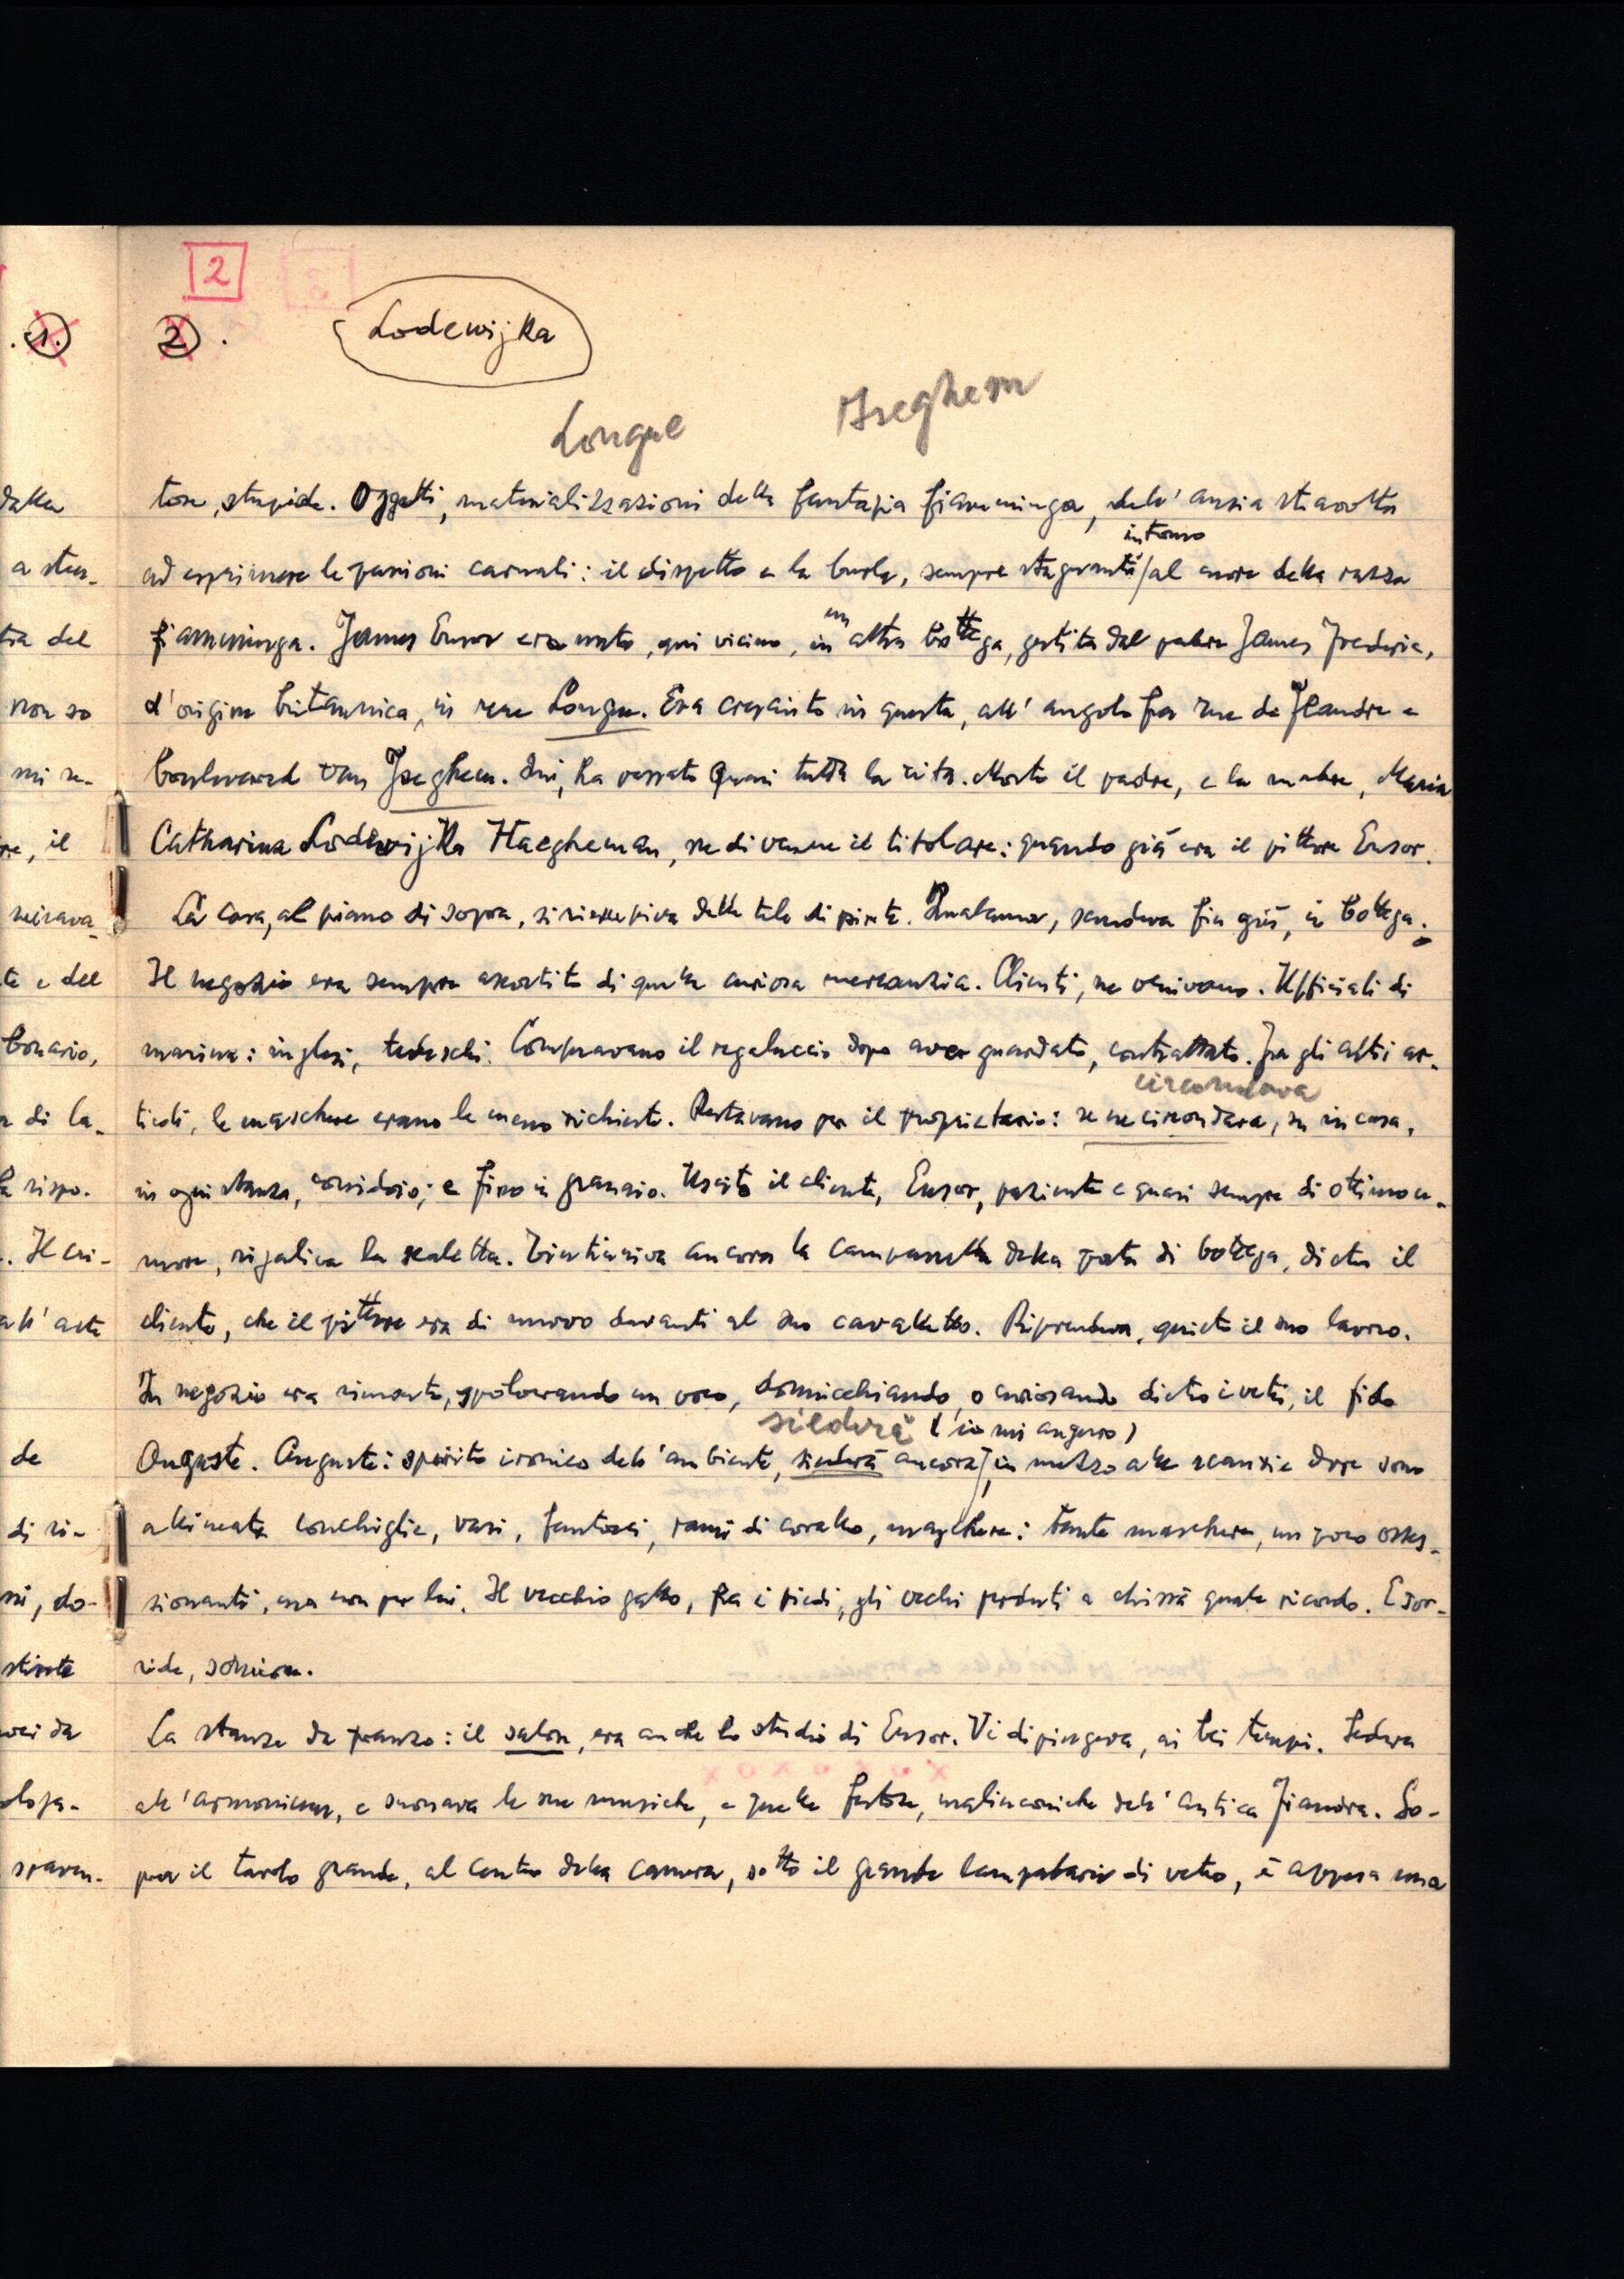 2
2.
Lodewijka
Longue Iseghem
tose, stupide. Oggetti, materializzazioni della fantasia fiamminga, dell'ansia stravolta
intorno
ad esprimere le passioni carnali: il dispetto e la burla, sempre stagnanti al cuore della razza
un'
fiamminga. James Ensor era nato, qui vicino, in altra bottega, gestita dal padre James Frederic,
d'origine britannica, in rue Longue. Era cresciuto in questa, all'angolo fra rue de Flandre e
boulevard van Iseghem. Qui, ha passato quasi tutta la vita. Morto il padre, e la madre, Maria
Catharina Lodewijka Haegheman, ne divenne il titolare: quando già era il pittore Ensor.
La casa, al piano di sopra, si riempiva delle tele dipinte. Qualcuna, scendeva fin giù, in bottega.
Il negozio era sempre assortito di quella curiosa mercanzia. Clienti, ne venivano. Ufficiali di
marina: inglesi, tedeschi. Compravano il regaluccio dopo aver guardato, contrattato. Fra gli altri ar-
circondava
ticoli, le maschere erano le meno richieste. Restavano per il proprietario: se ne circondava, su in casa,
in ogni stanza, corridoio; e fino in granaio. Uscito il cliente, Ensor, paziente e quasi sempre di ottimo u-
more, risaliva la scaletta. Tintinniva ancora la campanella della porta di bottega, dietro il
cliente, che il pittore era di nuovo davanti al suo cavalletto. Riprendeva, quieto il suo lavoro.
In negozio era rimasto, spolverando un poco, sonnecchiando, o curiosando dietro i vetri, il fido
siederà (io mi auguro)
Auguste. Auguste: spirito ironico dell'ambiente, siederà ancora, in mezzo alle scansie dove sono
allineate conchiglie, vasi, fantocci, rami di corallo, maschere: tante maschere, un poco osses-
sionanti, ma non per lui. Il vecchio gatto, fra i piedi, gli occhi perduti a chissà quale ricordo. E sor-
ride, sornione.
La stanza da pranzo: il salon, era anche lo studio di Ensor. Vi dipingeva, ai bei tempi. Sedeva
all'armonium, e suonava le sue musiche, e quelle festose, malinconiche dell'antica Fiandra. So-
pra il tavolo grande, al centro della camera, sotto il grande lampadario di vetro, è appesa una
1.
della
tra del
non so
mi re-
re, il
te e del
bonario,
di la-
. Il cri-
de
di ri-
ni, do-